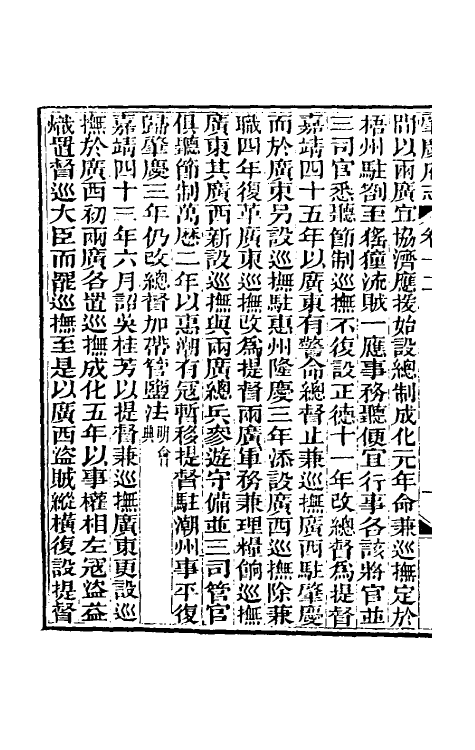 肇慶府志　卷十二
間以兩廣宜協濟應援始設總制成化元年命兼巡撫定於
梧州駐劄至猺獞流賊一應事務聽便宜行事各該將官並
三司官悉聽節制巡撫不復設正德十一年改總督為提督
嘉靖四十五年以廣東有警命總督止兼巡撫廣西駐肇慶
而於廣東另設巡撫駐惠州隆慶三年添設廣西巡撫除兼
職四年復革廣東巡撫改為提督兩廣軍務兼理糧餉巡撫
廣東其廣西新設巡撫與兩廣總兵參遊守備並三司管官
俱聽節制萬歷二年以惠潮有寇暫移提督駐潮州事平復
歸肇慶三年仍改總督加帶管鹽法明會典
嘉靖四十三年六月詔吳桂芳以提督兼巡撫廣東更設巡
撫於廣西初兩廣各置巡撫成化五年以事權相左寇盜益
熾置督巡大臣而罷巡撫至是以廣西盜賊縱橫復設提督